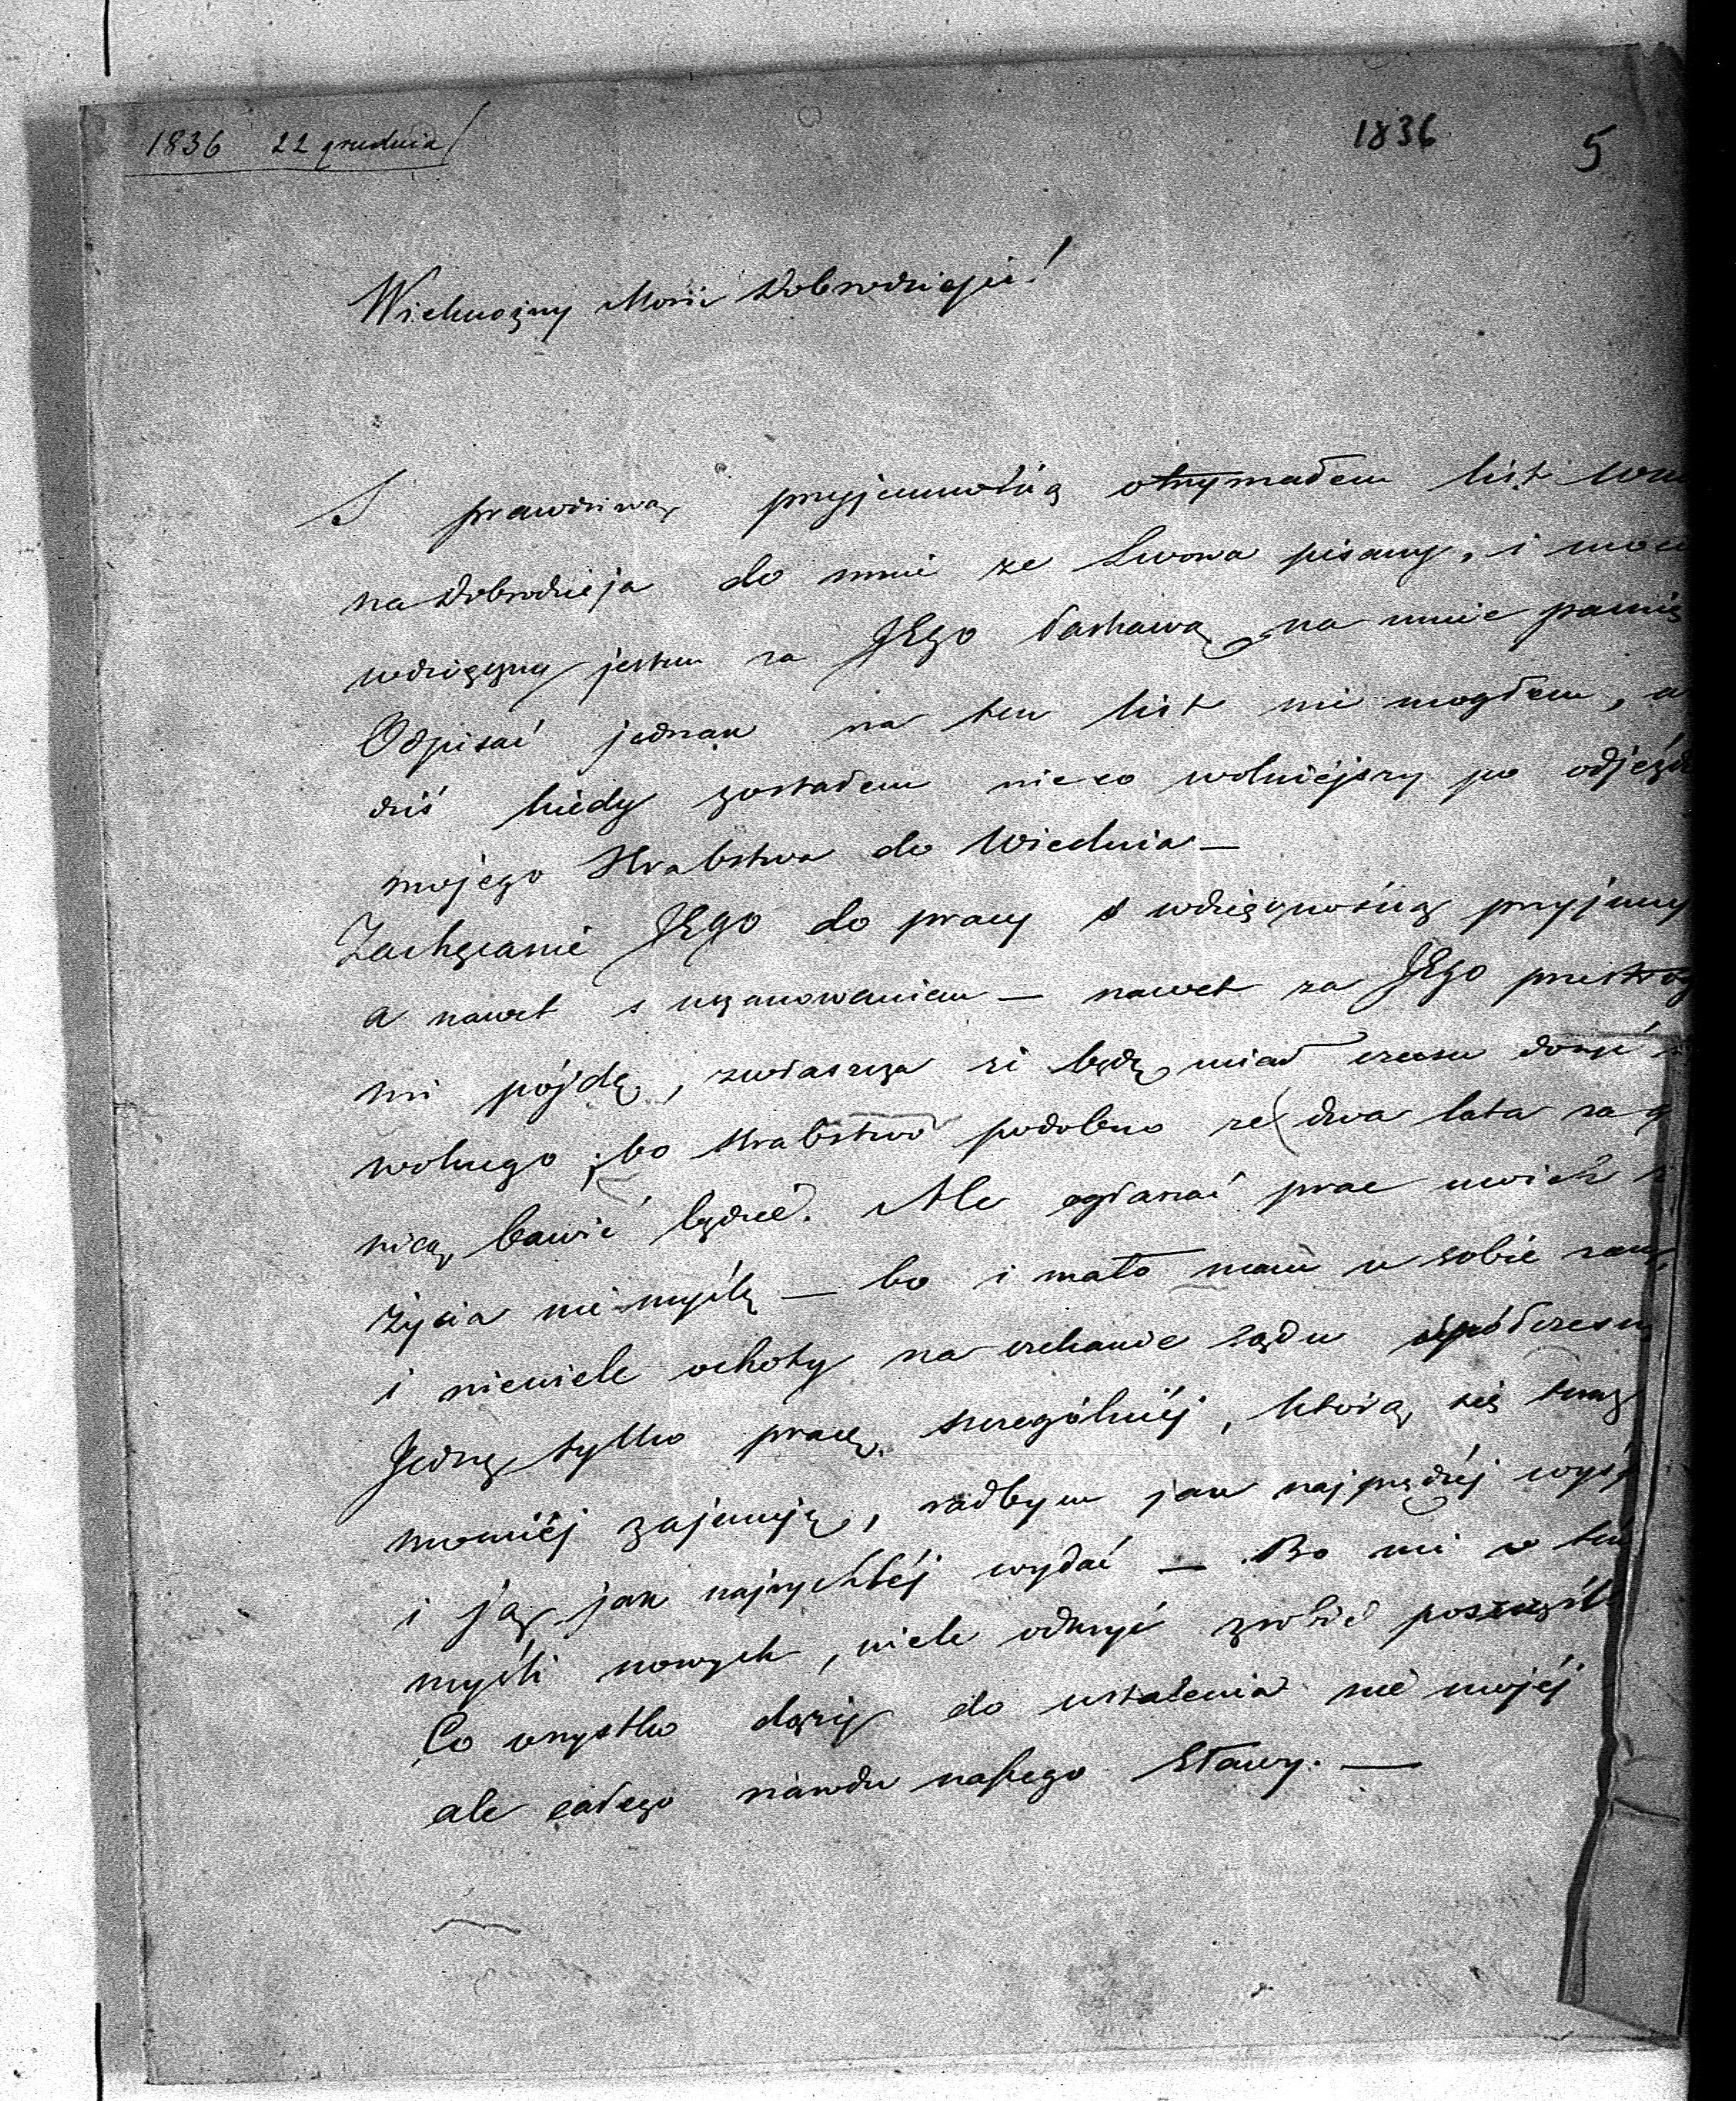 1836 22 grudnia
1836 5
Wielmożny Mości Dobrodzieju!
S prawdziwą przyjemnością otrzymałem list
na Dobrodzieja do mnie ze Lwowa pisany, i
wdzięczny jestem za JEgo łaskawą na mnie
Odpisać jednak na ten list nie mogłem, a
dziś kiedy zostałem nieco wolniejszy po
mojego Hrabstwa do Wiednia —
Zachęcanie JEgo do pracy s wdzięcznością
a nawet s uszanowaniem — nawet za JEgo
mi pójdę, zwłaszcza że będę miał czasu dosyć
wolnego, bo Hrabstwo podobno ze dwa lata za
nicą bawić będzie. Ale ogłaszać prac
życia nie myślę — bo i mało mam w sobie
i niewiele ochoty na czekanie sądu
Jednę tylko pracę szczególniej, którą się
mowiéj zajmuję, radbym jak najprędzéj
i ją jak najrychléj wydać — Bo mi w
myśli nowych, wiele odkryć zrobić
Co wszystko dąży do ustalenia nie mojéj
ale całego narodu naszego Sławy. —